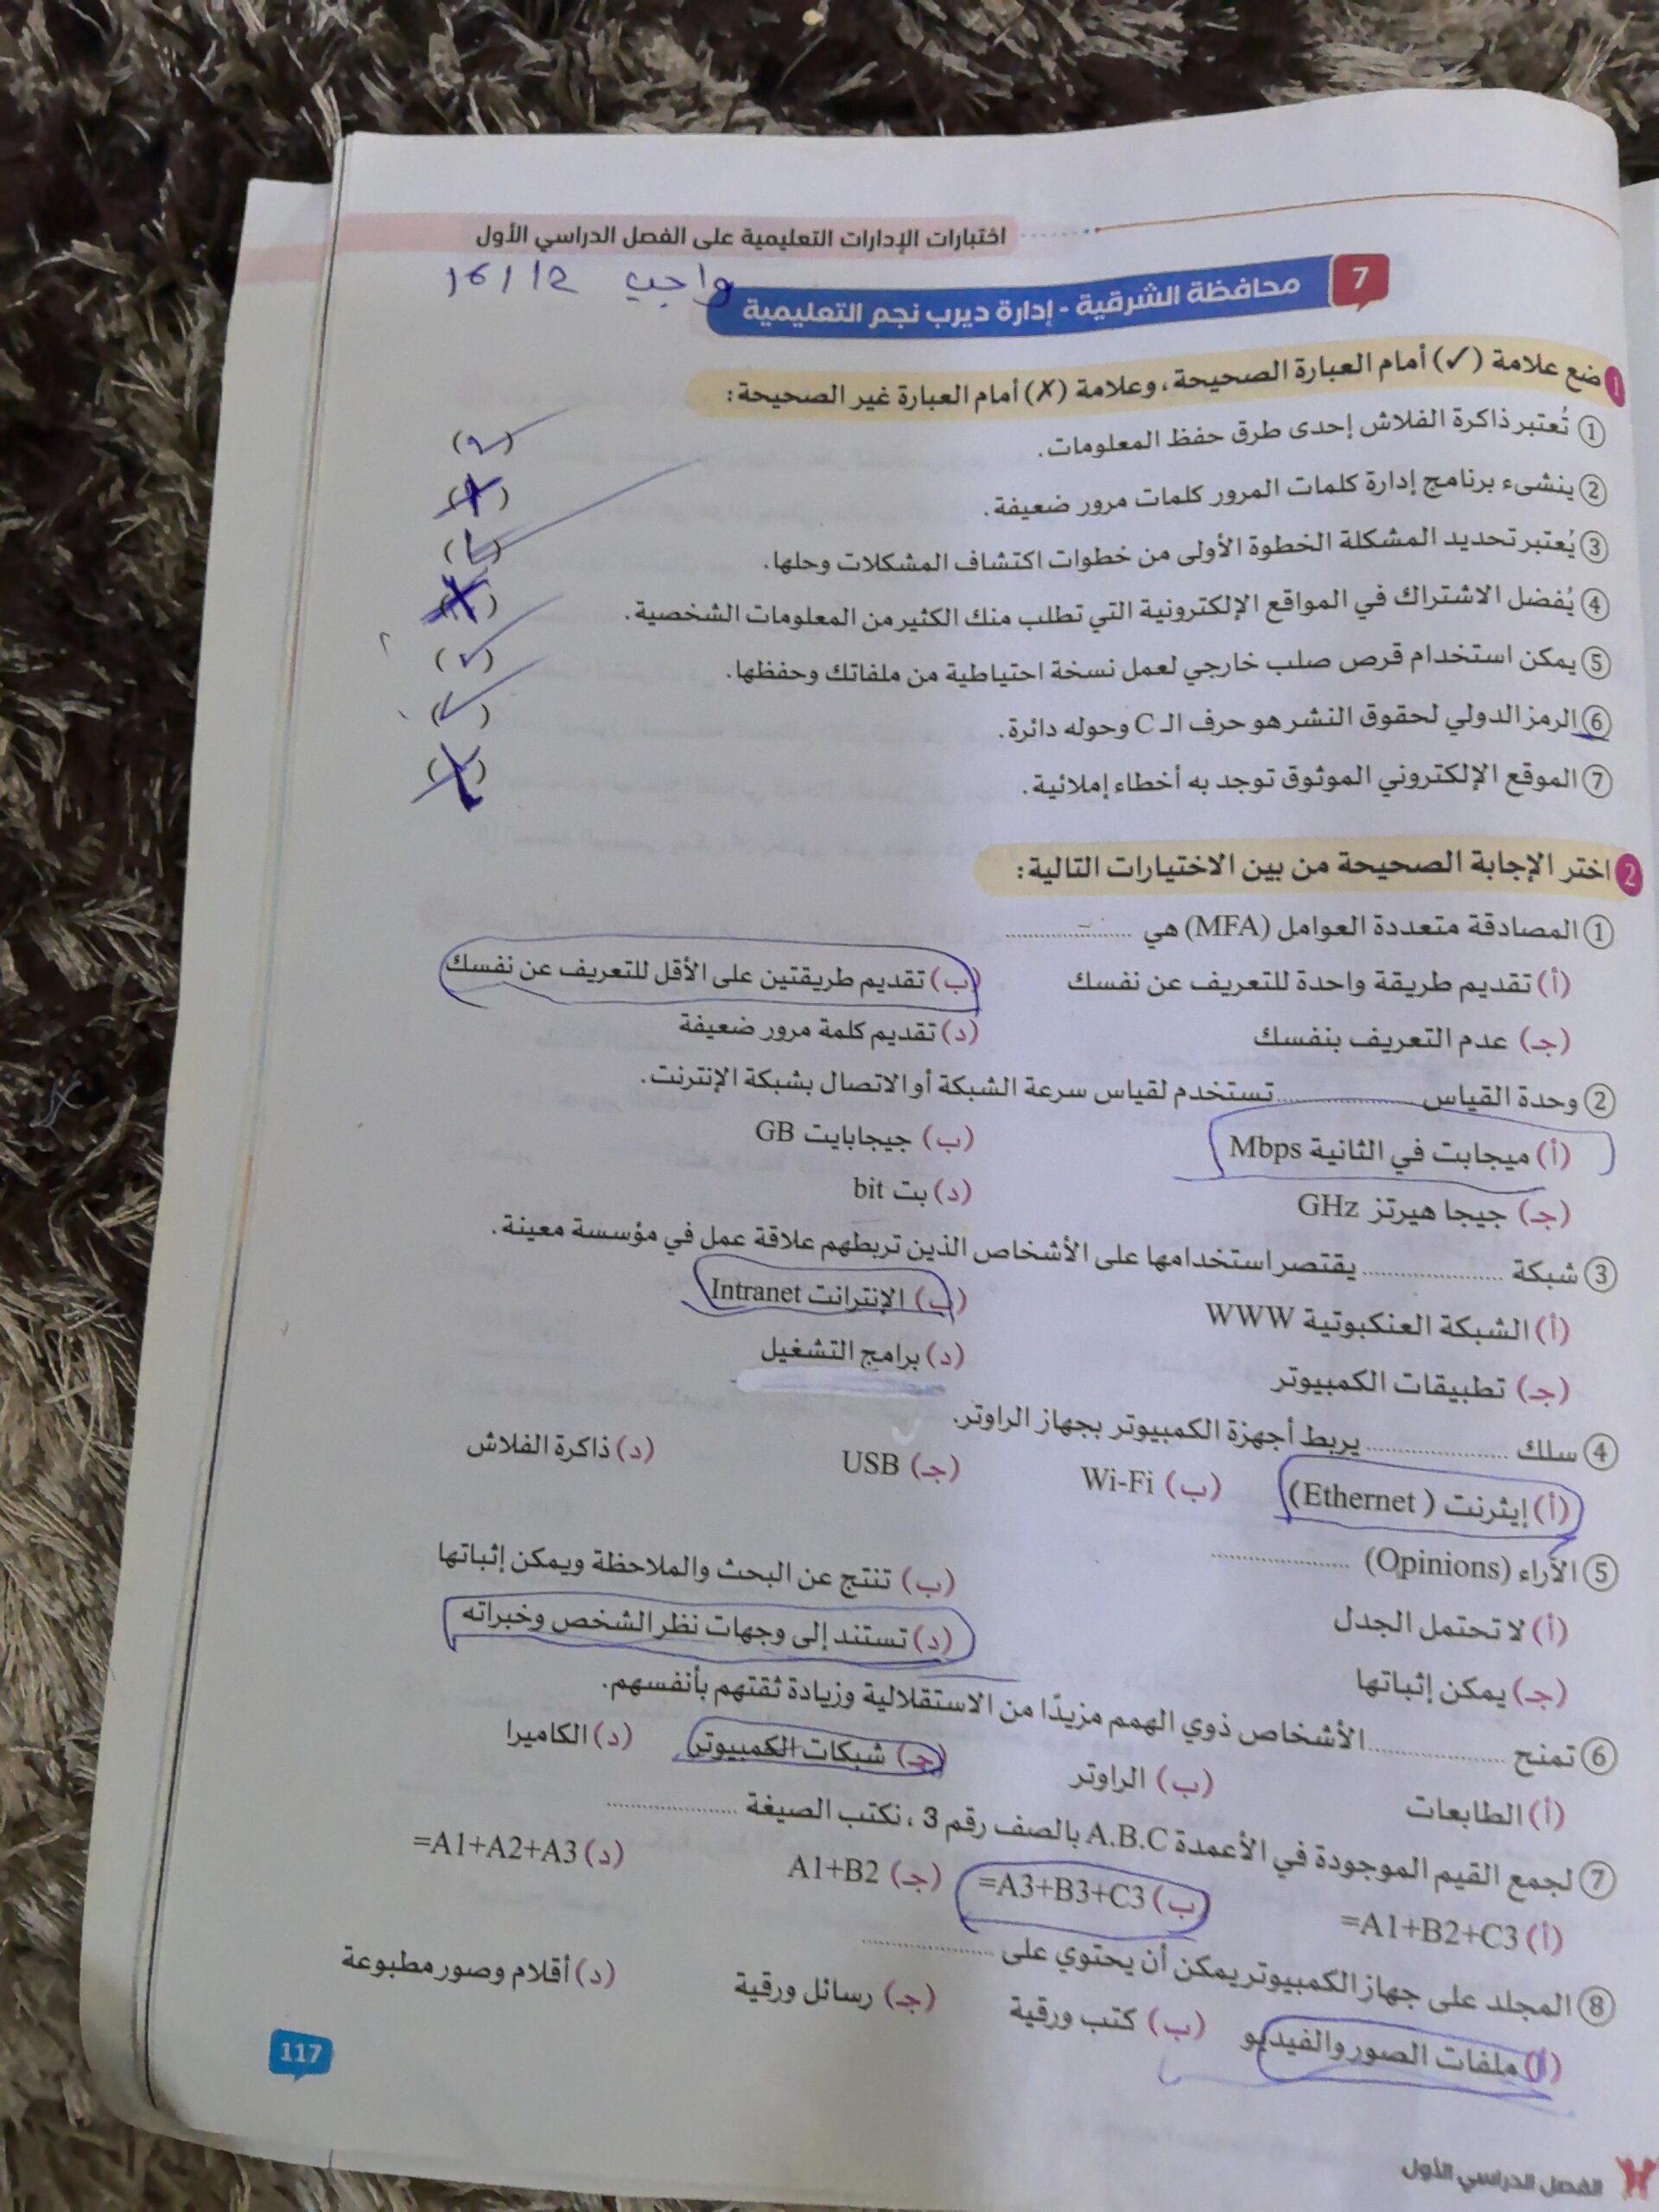 اختبارات الإدارات التعليمية على الفصل الدراسي الأول
واجب 16/12
7 محافظة الشرقية - إدارة ديرب نجم التعليمية
1 ضع علامة (✓) أمام العبارة الصحيحة، وعلامة (✗) أمام العبارة غير الصحيحة:
① تُعتبر ذاكرة الفلاش إحدى طرق حفظ المعلومات. (✓)
② ينشىء برنامج إدارة كلمات المرور كلمات مرور ضعيفة. (✗)
③ يُعتبر تحديد المشكلة الخطوة الأولى من خطوات اكتشاف المشكلات وحلها. (✓)
④ يُفضل الاشتراك في المواقع الإلكترونية التي تطلب منك الكثير من المعلومات الشخصية. (✗)
⑤ يمكن استخدام قرص صلب خارجي لعمل نسخة احتياطية من ملفاتك وحفظها. (✓)
⑥ الرمز الدولي لحقوق النشر هو حرف الـ C وحوله دائرة. (✓)
⑦ الموقع الإلكتروني الموثوق توجد به أخطاء إملائية. (✗)
2 اختر الإجابة الصحيحة من بين الاختيارات التالية:
① المصادقة متعددة العوامل (MFA) هي ....................
(أ) تقديم طريقة واحدة للتعريف عن نفسك (ب) تقديم طريقتين على الأقل للتعريف عن نفسك
(جـ) عدم التعريف بنفسك (د) تقديم كلمة مرور ضعيفة
② وحدة القياس .................... تستخدم لقياس سرعة الشبكة أو الاتصال بشبكة الإنترنت.
(أ) ميجابت في الثانية Mbps (ب) جيجابايت GB
(جـ) جيجا هيرتز GHz (د) بت bit
③ شبكة .................... يقتصر استخدامها على الأشخاص الذين تربطهم علاقة عمل في مؤسسة معينة.
(أ) الشبكة العنكبوتية WWW (ب) الإنترانت Intranet
(جـ) تطبيقات الكمبيوتر (د) برامج التشغيل
④ سلك .................... يربط أجهزة الكمبيوتر بجهاز الراوتر.
(أ) إيثرنت (Ethernet) (ب) Wi-Fi (جـ) USB (د) ذاكرة الفلاش
⑤ الآراء (Opinions) ....................
(أ) لا تحتمل الجدل (ب) تنتج عن البحث والملاحظة ويمكن إثباتها
(جـ) يمكن إثباتها (د) تستند إلى وجهات نظر الشخص وخبراته
⑥ تمنح .................... الأشخاص ذوي الهمم مزيدًا من الاستقلالية وزيادة ثقتهم بأنفسهم.
(أ) الطابعات (ب) الراوتر (جـ) شبكات الكمبيوتر (د) الكاميرا
⑦ لجمع القيم الموجودة في الأعمدة A.B.C بالصف رقم 3 ، نكتب الصيغة ....................
(أ) =A1+B2+C3 (ب) =A3+B3+C3 (جـ) A1+B2 (د) =A1+A2+A3
⑧ المجلد على جهاز الكمبيوتر يمكن أن يحتوي على ....................
(أ) ملفات الصور والفيديو (ب) كتب ورقية (جـ) رسائل ورقية (د) أقلام وصور مطبوعة
117
الفصل الدراسي الأول